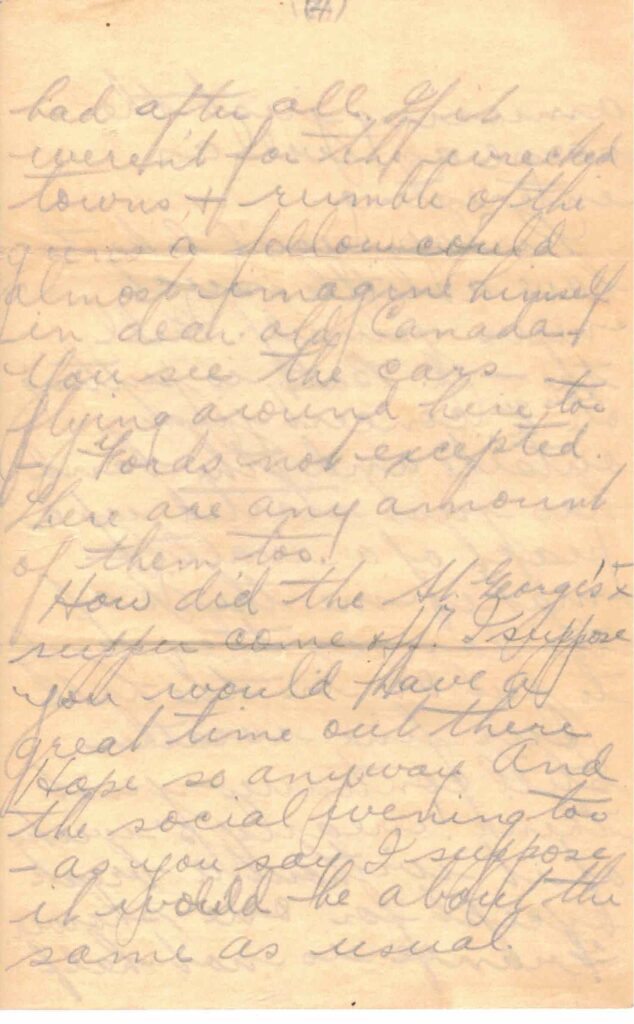 (4)
bad after all. If it
weren't for the wracked
towns, + rumble of the
guns a fellow could
almost imagine himself
in dear old Canada.
You see the cars
flying around here too
- Fords not excepted.
There are any amount
of them too.
How did the St. George's
supper come off? I suppose
you would have a
great time out there
Hope so anyway. And
the social evening too
- as you say I suppose
it would be about the
same as usual.